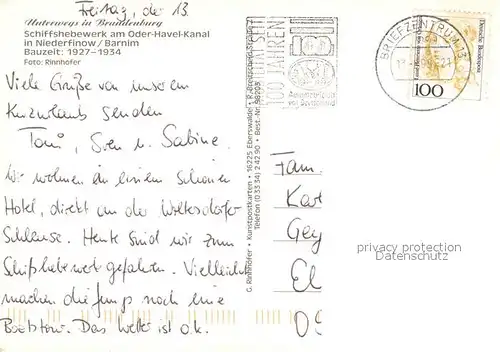 Freitag, der 13.
Unterwegs in Brandenburg
Schiffshebewerk am Oder-Havel-Kanal
in Niederfinow/Barnim
Bauzeit: 1927–1934
Foto: Rinnhofer
Viele Grüße von unserem
Kurzurlaub senden
Toni, Sven u. Sabine.
Wir wohnen in einem schönen
Hotel, direkt an der Woltersdorfer
Schleuse. Heute sind wir zum
Schiffshebewerk gefahren. Vielleicht
machen die Jungs noch eine
Bootstour. Das Wetter ist o.k.
G. Rinnhofer • Kunstpostkarten • 16225 Eberswalde • R.-Breitscheid-Str.
Telefon (0 33 34) 2 42 90 • Best.-Nr. 96203
SEIT
100 JAHREN
BRIEFZENTRUM 13
Deutsche Bundespost
100
Fam.
Kar
Gey
El
09
privacy protection
Datenschutz